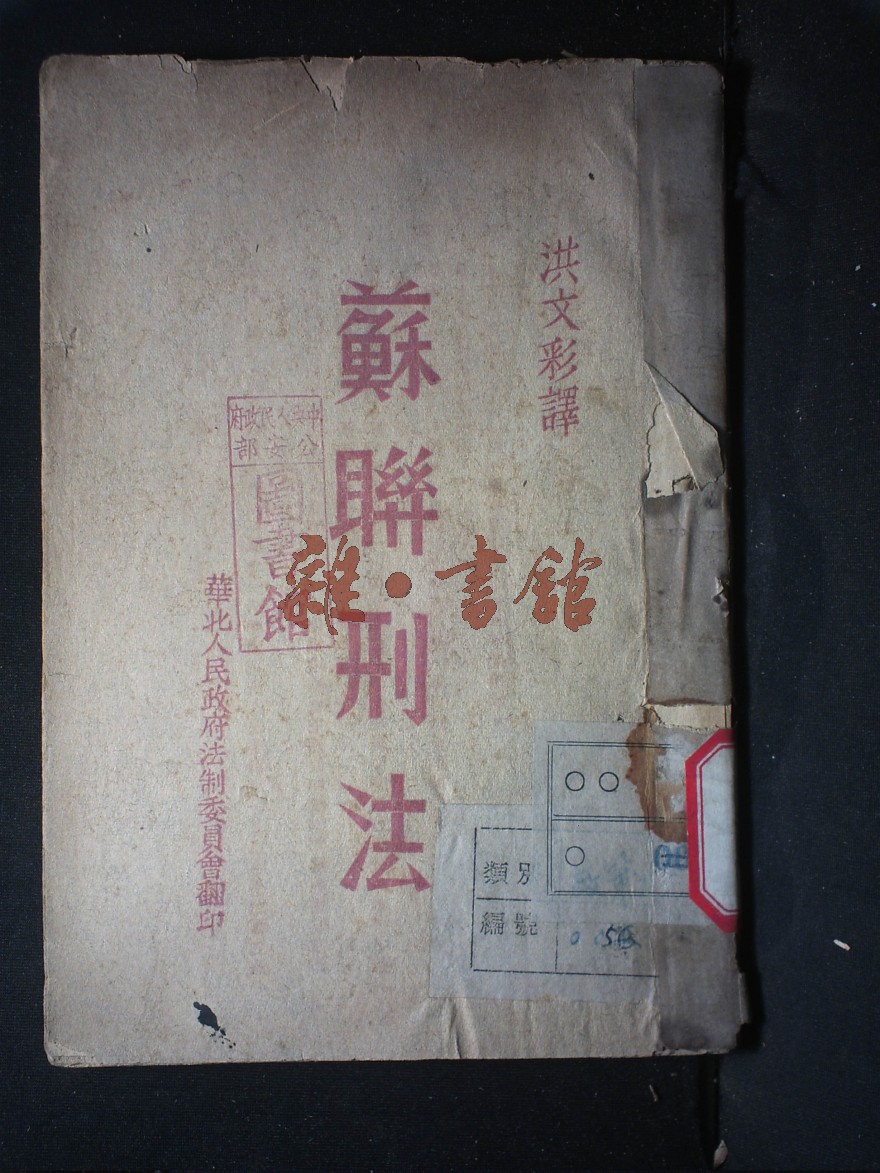 洪文彩譯
蘇聯刑法
中央人民政府
公安部
圖書館
華北人民政府法制委員會翻印
雜·書館
○○
○
類別
編號